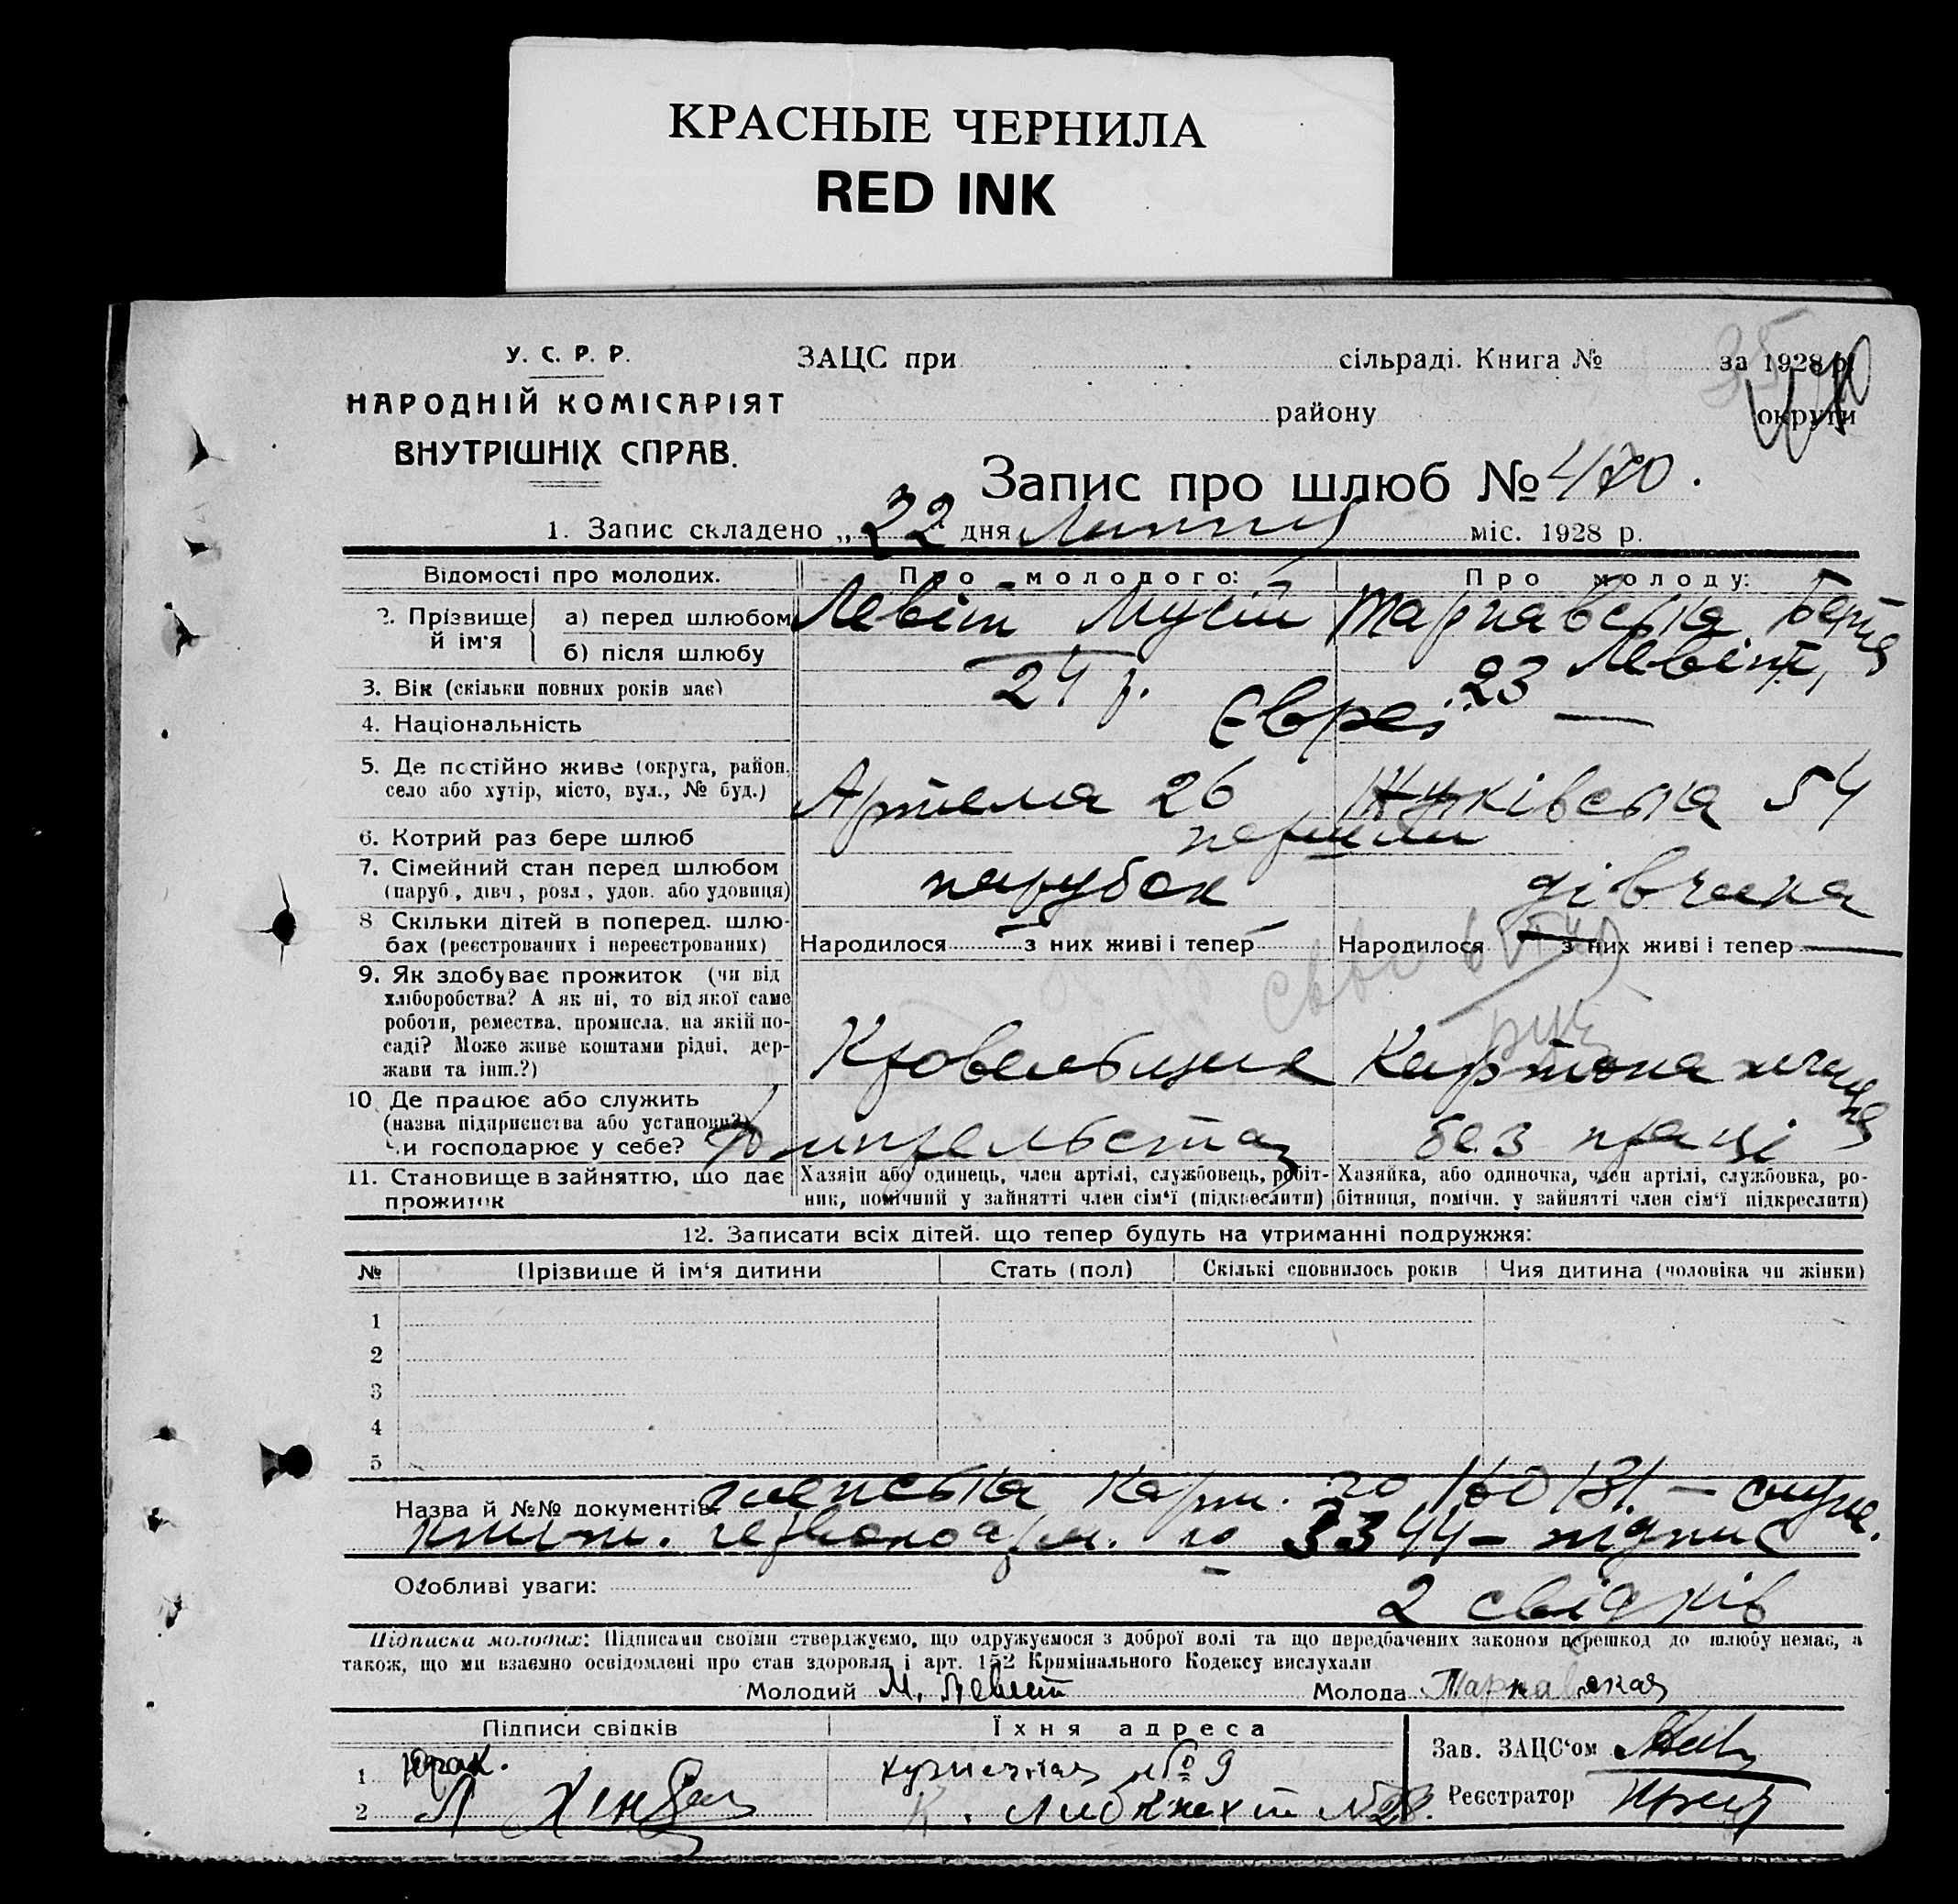 КРАСНЫЕ ЧЕРНИЛА
RED INK
У. С. Р. Р.
НАРОДНІЙ КОМІСАРІЯТ
ВНУТРІШНІХ СПРАВ.
ЗАЦС при сільраді. Книга № за 1928 р.
району округи
35
470
Запис про шлюб № 470.
1. Запис складено „ 22 дня Липня міс. 1928 р.
Відомості про молодих. Про молодого: Про молоду:
2. Прізвище й ім'я а) перед шлюбом Левіт Мусій Тарнавська Берта
б) після шлюбу Левіт
3. Вік (скільки повних років має) 24 р. 23
4. Національність Євреї
5. Де постійно живе (округа, район, село або хутір, місто, вул., № буд.) Артема 26 54
6. Котрий раз бере шлюб перший
7. Сімейний стан перед шлюбом (паруб., дівч., розл., удов. або удовиця) парубок дівчина
8 Скільки дітей в поперед. шлюбах (реєстрованих і нереєстрованих) Народилося — з них живі і тепер — Народилося — з них живі і тепер —
9. Як здобуває прожиток (чи від хліборобства? А як ні, то від якої саме роботи, ремества, промисла, на якій посаді? Може живе коштами рідні, держави та інш.?) Кровельщик
10. Де працює або служить (назва підприєнства або установи?) Чи господарює у себе? без праці
11. Становище в зайняттю, що дає прожиток Хазяїн або одинець, член артілі, службовець, робітник, помічний у зайнятті член сім'ї (підкреслити) Хазяйка, або одиночка, член артілі, службовка, робітниця, помічн. у зайнятті член сім'ї підкреслити)
12. Записати всіх дітей, що тепер будуть на утриманні подружжя:
№ Прізвище й ім'я дитини Стать (пол) Скількі сповнилось років Чия дитина (чоловіка чи жінки)
1
2
3
4
5
Назва й №№ документів: членська карт. по
книж. червоноарм. no 3344 – підпис
Особливі уваги: 2 свідків
Підписка молодих: Підписами своїми стверджуємо, що одружуємося з доброї волі та що передбачених законом перешкод до шлюбу немає, а
також, що ми взаємно освідомлені про стан здоровля і арт. 152 Кримінального Кодексу вислухали
Молодий М. Левит Молода Тарнавская
Підписи свідків Їхня адреса Зав. ЗАЦС'ом
1 Кузнечная № 9
2 К. Либкнехт № 28. Реєстратор